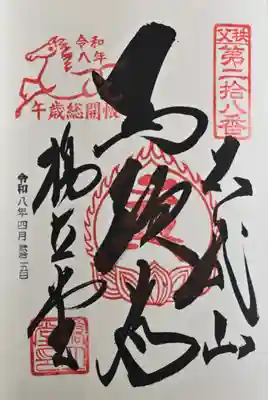 秩父
第二拾八番
石龍山
馬頭尊
令和
八年
午歳総開帳
橋立堂
令和八年四月